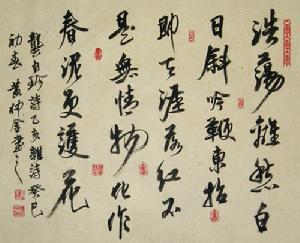 浩蕩離愁白
日斜吟鞭東指
即天涯落红不
是無情物化作
春泥更護花
龔自珍诗己亥雜诗癸巳
初春黄仲金書之